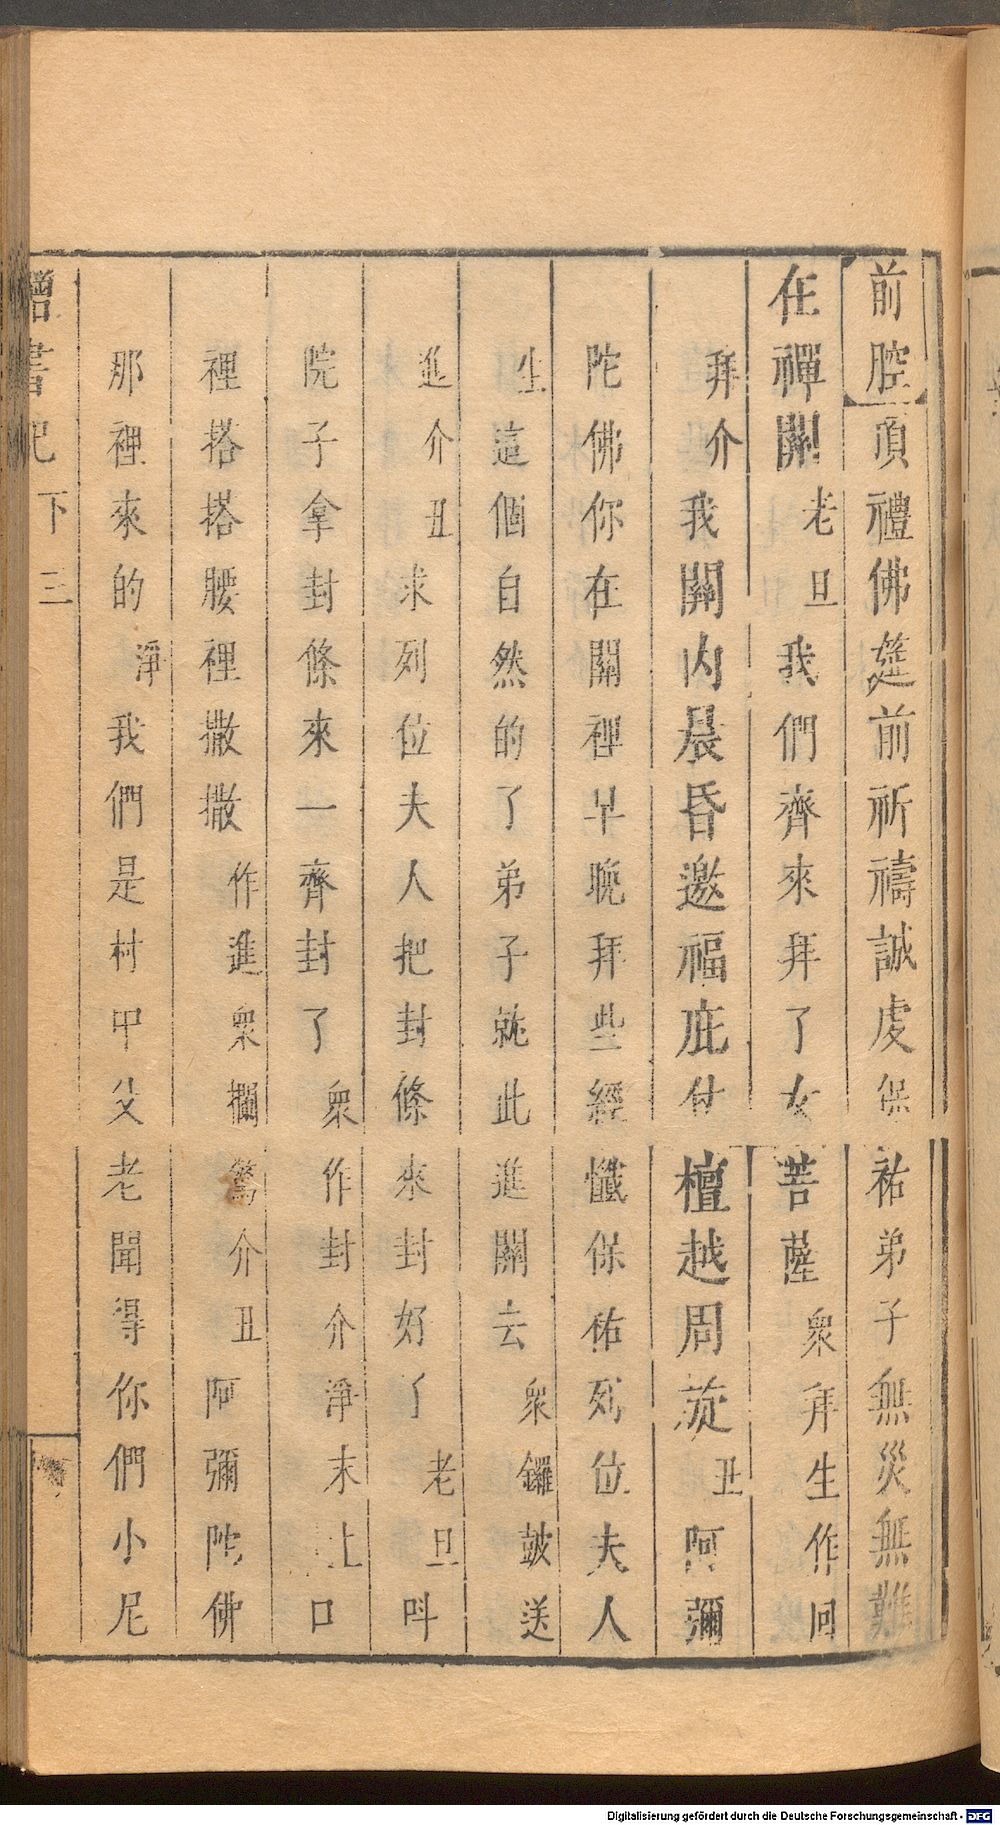 前腔頂禮佛筵前祈禱誠虔保祐弟子無災無難
在禪關老旦我們齊來拜了女菩薩衆拜生作回
拜介我關內晨昏邀福庇付檀越周旋丑阿彌
陀佛你在關裡早晚拜些經懺保祐列位夫人
生這個自然的了弟子就此進關去衆鑼鼓送
進介丑求列位夫人把封條來封好了老旦呌
院子拿封條來一齊封了衆作封介淨末上口
裡搭搭腰裡撒撒作進衆攔驚介丑阿彌陀佛
那裡來的淨我們是村中父老聞得你們小尼
書記 下 三
Digitalisierung gefördert durch die Deutsche Forschungsgemeinschaft - DFG